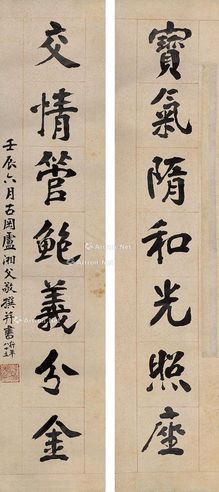 寶氣隋和光照座
交情管鮑義分金
壬辰六月古岡盧湘父敬撰并書